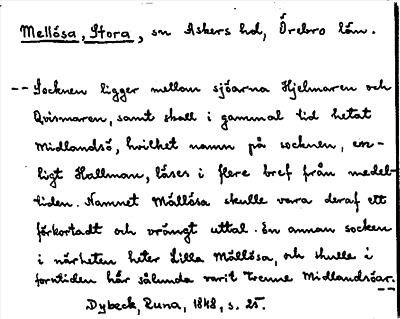 Mellösa, Stora, sn Askers hd, Örebro län.
-- Socknen ligger mellan sjöarna Hjelmaren och
Qvismaren, samt skall i gammal tid hetat
Midlandsö, hvilket namn på socknen, en-
ligt Hallman, läses i flere bref från medel-
tiden. Namnet Mällösa skulle vara deraf ett
förkortadt och vrängt uttal. En annan socken
i närheten heter Lilla Mällösa, och skulle i
forntiden här sålunda varit trenne Midlandsöar.--
Dybeck, Runa, 1848, s. 25.